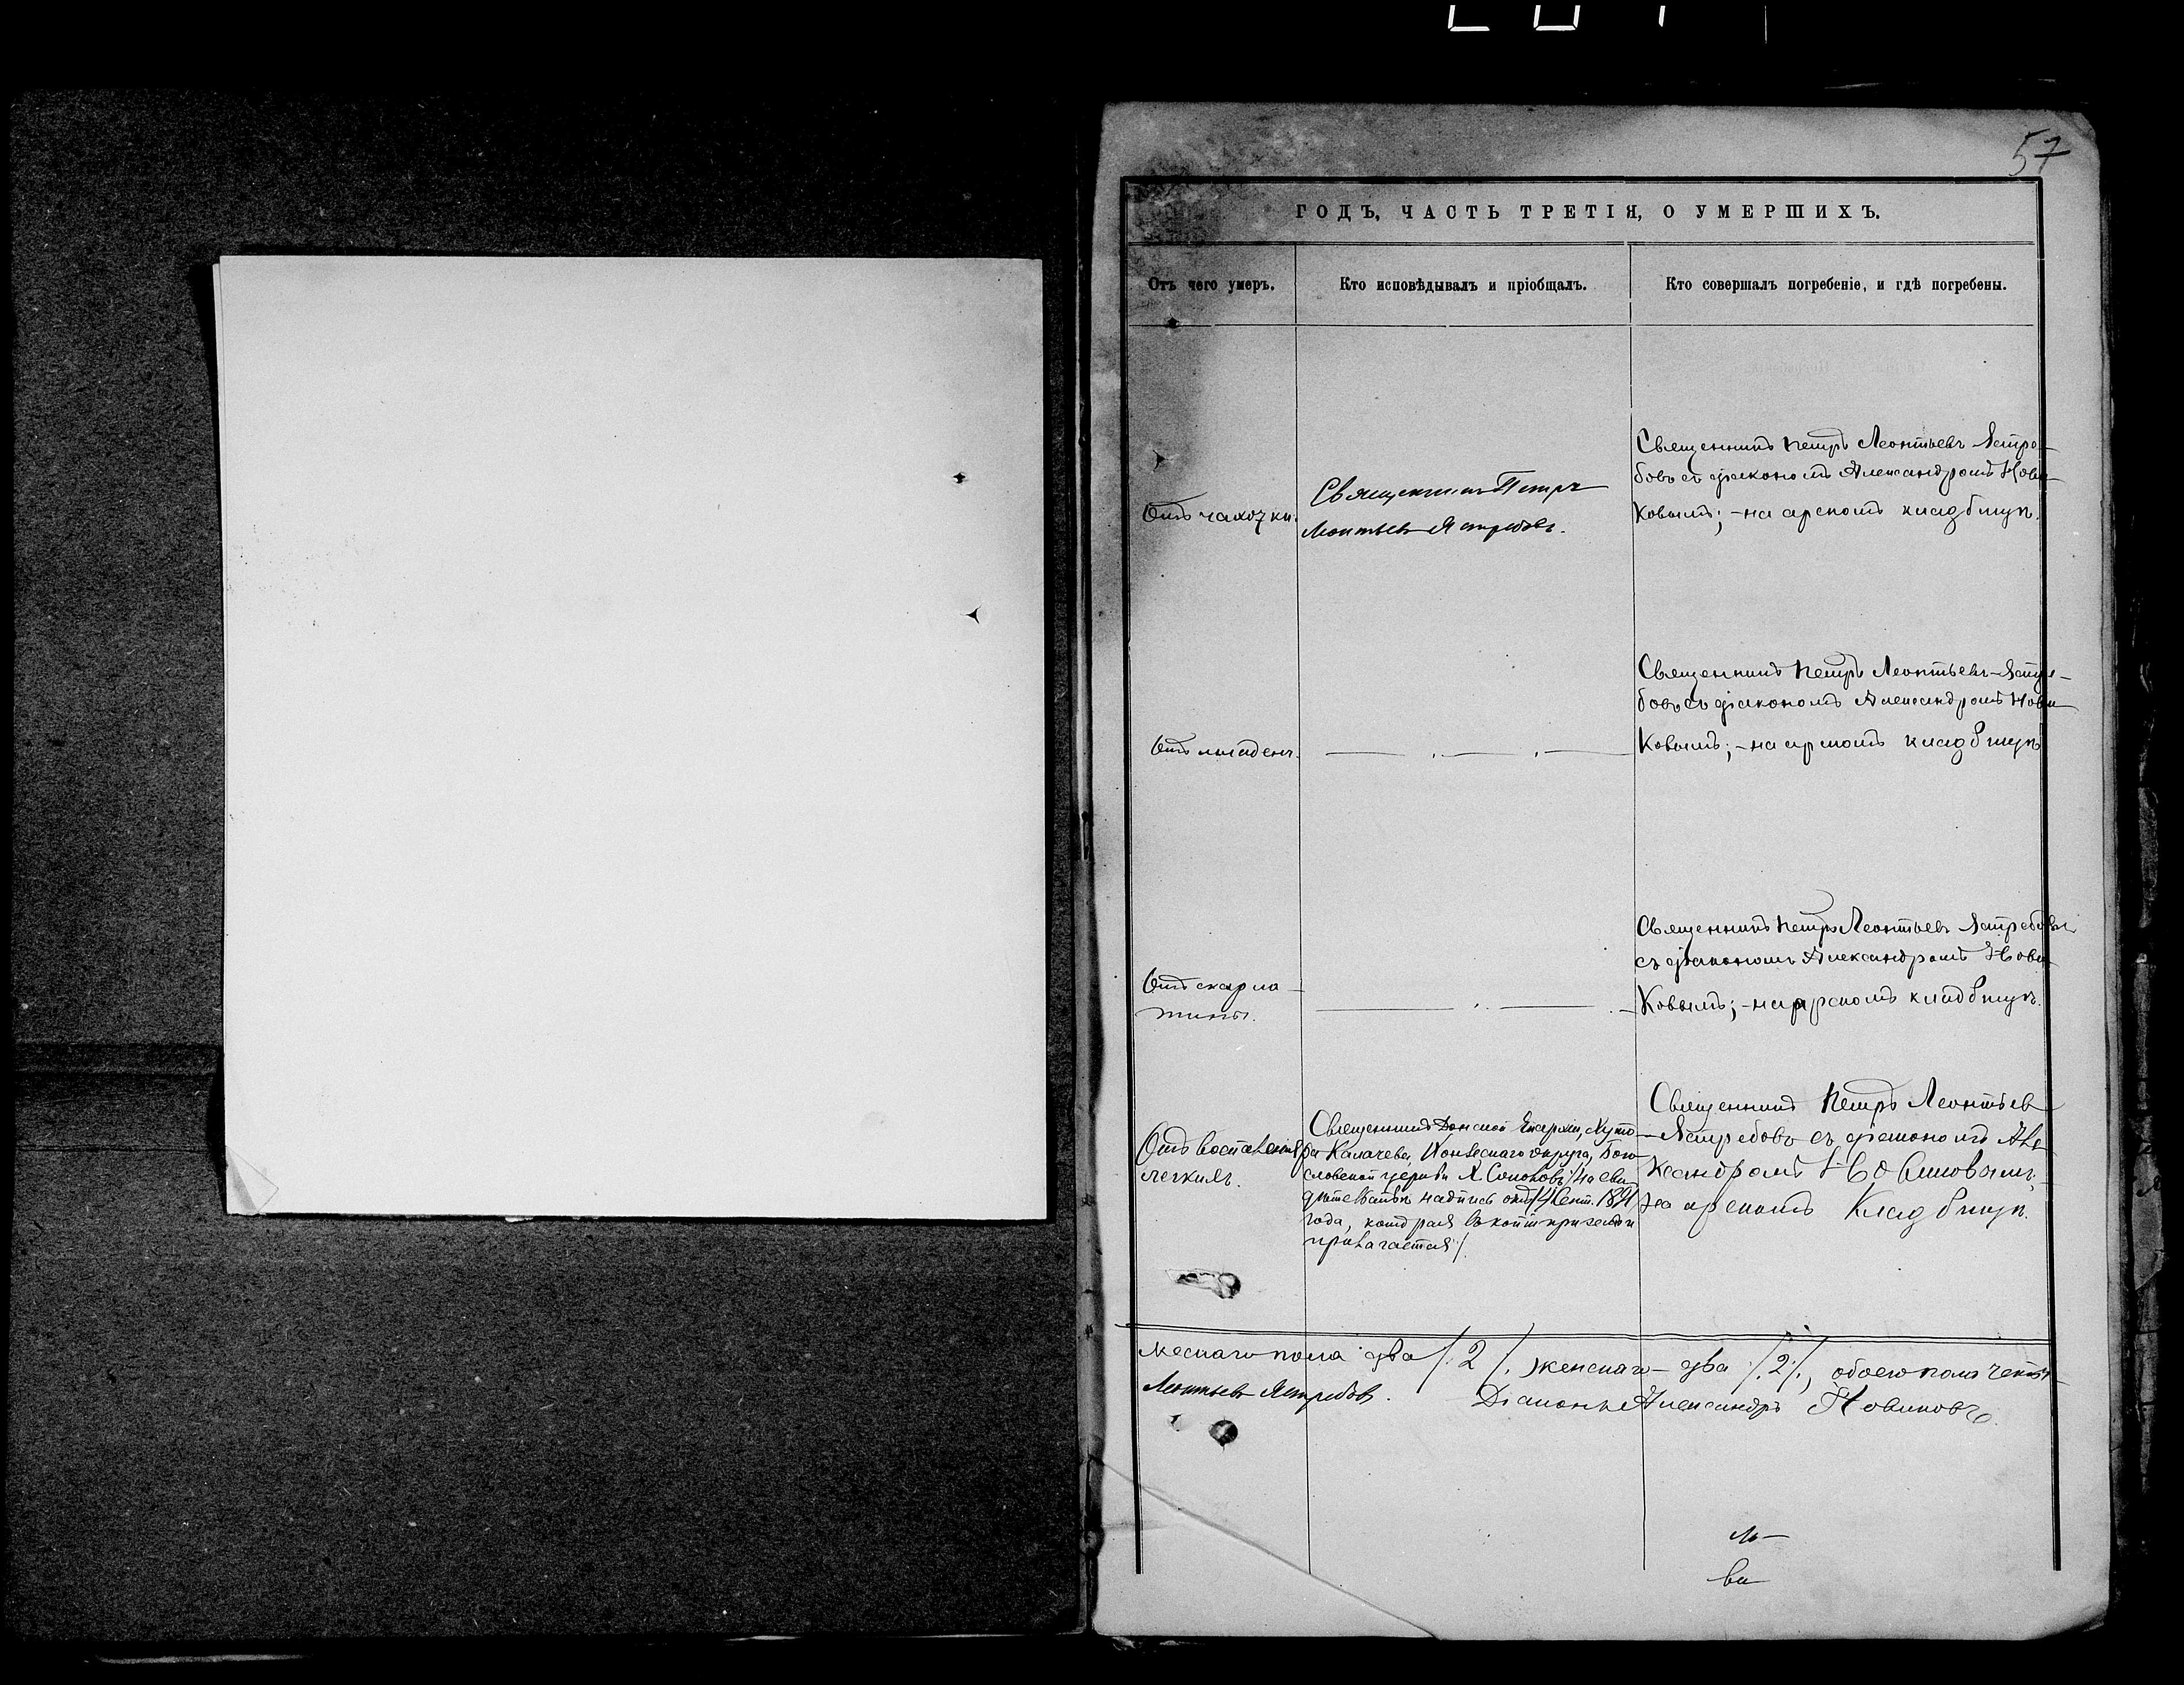 57
ГОДЪ, ЧАСТЬ ТРЕТІЯ, О УМЕРШИХЪ.
Отъ чего умеръ.
Кто исповѣдывалъ и пріобщалъ.
Кто совершалъ погребеніе, и гдѣ погребены.
Отъ чахотки.
Священникъ Петръ
Леонтьевъ Ястребовъ.
Священникъ Петръ Леонтьевъ Ястре-
бовъ съ діакономъ Александромъ Нови-
ковымъ; - на арскомъ кладбищѣ.
Отъ младенч.
Священникъ Петръ Леонтьевъ Ястре-
бовъ съ діакономъ Александромъ Нови-
ковымъ; - на арскомъ кладбищѣ
Отъ скарла-
тины.
Священникъ Петръ Леонтьевъ Ястребовъ
съ діакономъ Александромъ Нови-
ковымъ; - на арскомъ кладбищѣ.
Отъ воспаленія
легкихъ.
Священникъ Донской Епархіи, Хуто-
ра Калачева, округа, Бого-
словской церкви Соколовъ /на сви-
дѣтельствѣ надпись отъ 14 Сент. 1891
года, которая въ копіи при семъ и
прилагается/.
Священникъ Петръ Леонтьевъ
Ястребовъ съ діакономъ Але-
ксандромъ Новиковымъ,
на арскомъ кладбищѣ.
жескаго пола два /.2/. женскаго - два /.2/., обоего пола четы-
Леонтьевъ Ястребовъ. Діаконъ Александръ Новиковъ.